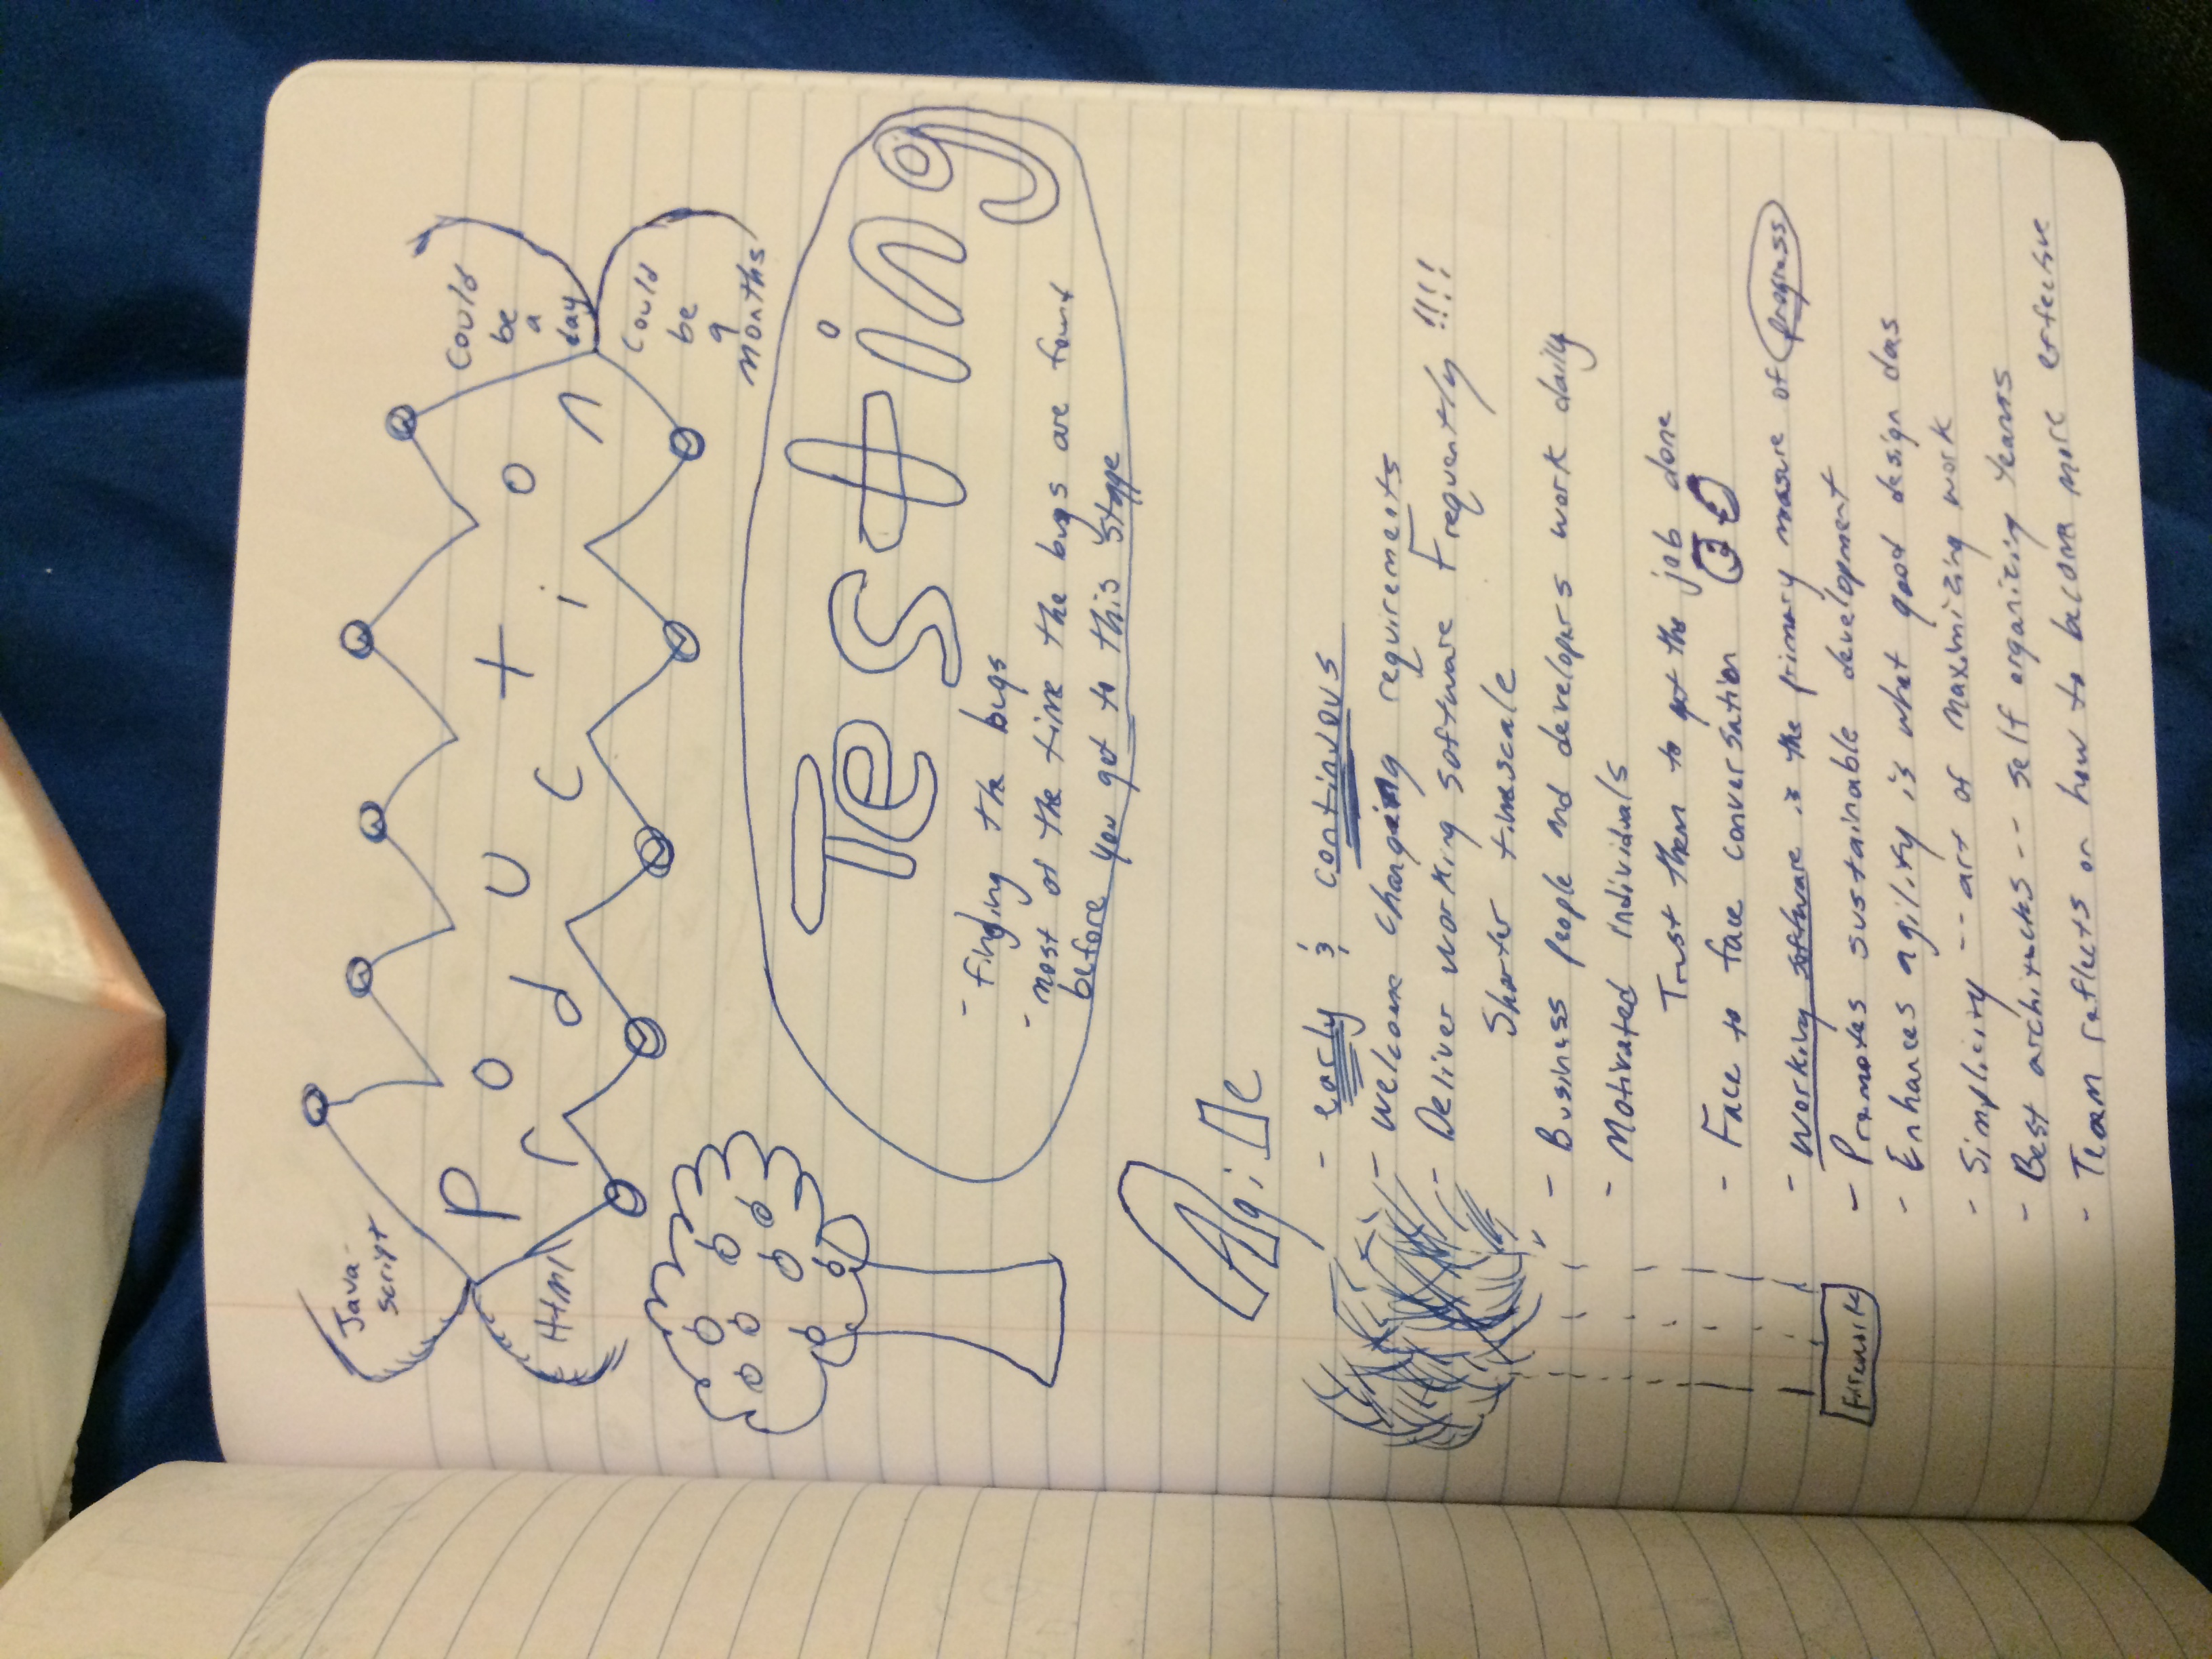 Java-
script
Html
Production
Could
be
a
day
Could
be
9
months
Testing
- finding the bugs
- most of the time the bugs are found
before you get to this stage
Agile
- early & continuous
- welcome changing requirements
- Deliver working software Frequently !!!!
Shorter timescale
- Business people and developers work daily
- Motivated individuals
Trust them to get the job done
- Face to face conversation
- Working software is the primary measure of progress
- Promotes sustainable development
- Enhances agility is what good design das
- Simplicity -- art of maximizing work
- Best architucks -- self organizing teams
- Team reflects on how to become more effective